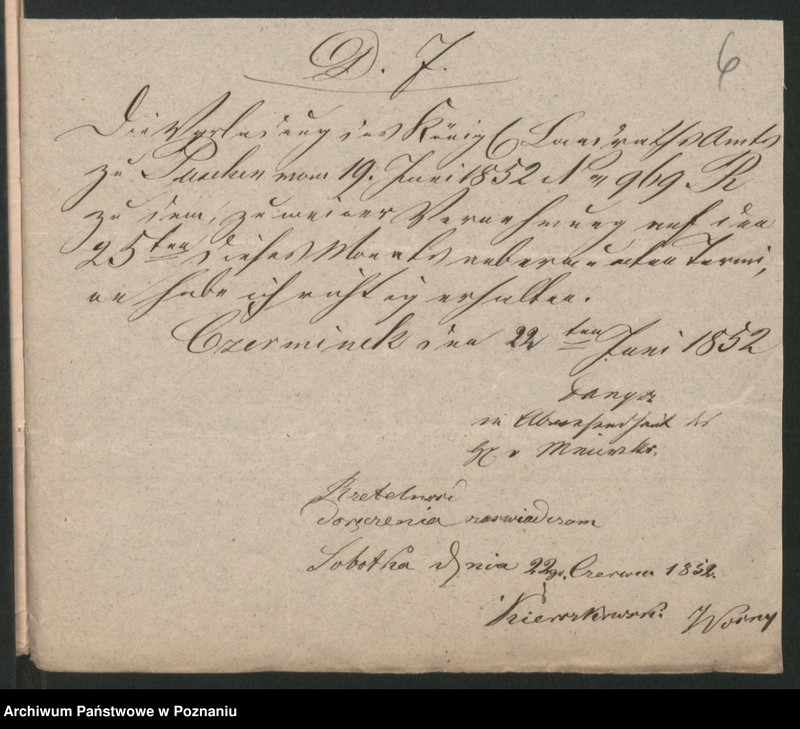 D. J.
6
Die Vorladung des Königl Landraths Amts
zu Pleschen vom 19. Juni 1852 No 969 R
zu dem, zu meiner Vernehmung auf den
25ten dieses Monats anberaumten Termi,
ne habe ich richtig erhalten.
Czerminek den 22ten Juni 1852
in Abwesenheit des
H v
Rzetelność
doręczenia zaswiadczam
Sobotka dnia 22go Czerwca 1852.
Woźny
Archiwum Państwowe w Poznaniu